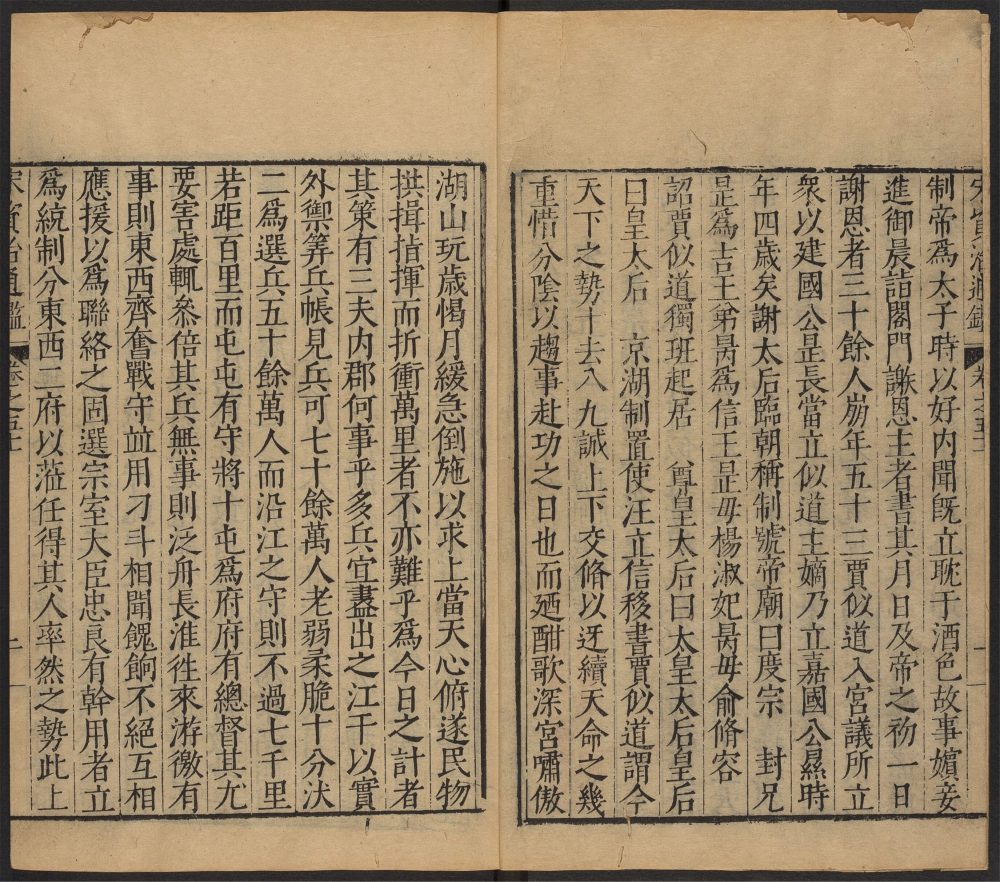 宋資治通鑑 卷之五十一 一
制帝爲太子時以好内聞既立耽于酒色故事嬪妾
進御晨詣閤門謝恩主者書其月日及帝之初一日
謝恩者三十餘人崩年五十三賈似道入宮議所立
衆以建國公昰長當立似道主嫡乃立嘉國公㬎時
年四歲矣謝太后臨朝稱制號帝廟曰度宗 封兄
昰爲吉王弟昺爲信王昰毋楊淑妃昺毋俞脩容
詔賈似道獨班起居 尊皇太后曰太皇太后皇后
曰皇太后 京湖制置使汪立信移書賈似道謂今
天下之勢十去八九誠上下交脩以迓續天命之幾
重惜分陰以趨事赴功之日也而廼酣歌深宮嘯傲
湖山玩歲愒月緩急倒施以求上當天心俯遂民物
拱揖指揮而折衝萬里者不亦難乎爲今日之計者
其策有三夫内郡何事乎多兵宜盡出之江干以實
外禦筭兵帳見兵可七十餘萬人老弱柔脆十分汰
二爲選兵五十餘萬人而沿江之守則不過七千里
若距百里而屯屯有守將十屯爲府府有總督其尤
要害處輒叅倍其兵無事則泛舟長淮徃來游徼有
事則東西齊奮戰守並用刁斗相聞餽餉不絕互相
應援以爲聯絡之固選宗室大臣忠良有幹用者立
爲統制分東西二府以蒞任得其人率然之勢此上
宋資治通鑑 卷之五十 二